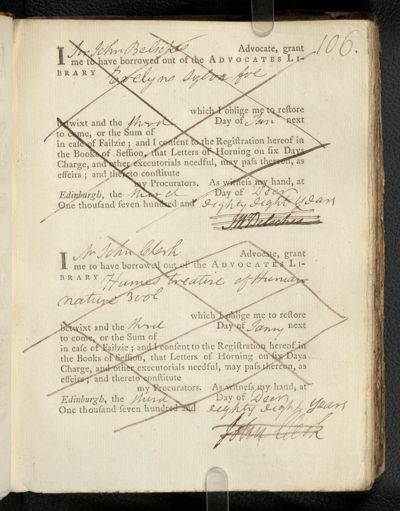 106.
I Sr John Belsches Advocate, grant
me to have borrowed out of the ADVOCATES LI-
BRARY Evelyns Sylva fve
which I oblige me to reſtore
betwixt and the third Day of Jan next
to come, or the Sum of
in caſe of Failzie; and I conſent to the Regiſtration hereof in
the Books of Seſſion, that Letters of Horning on ſix Days
Charge, and other executorials needful, may paſs thereon, as
effeirs; and thereto conſtitute
my Procurators. As witneſs my hand, at
Edinburgh, the third Day of Decr
One thouſand ſeven hundred and eighty eight years
Jn Belsches
I Mr John Clerk Advocate, grant
me to have borrowed out of the ADVOCATES LI-
BRARY Humes treatise of Human
nature 3vol
which I oblige me to reſtore
betwixt and the third Day of Jany next
to come, or the Sum of
in caſe of Failzie; and I conſent to the Regiſtration hereof in
the Books of Seſſion, that Letters of Horning on ſix Days
Charge, and other executorials needful, may paſs thereon, as
effeirs; and thereto conſtitute
my Procurators. As witneſs my hand, at
Edinburgh, the third Day of Decr
One thouſand ſeven hundred and eighty eight years
John Clerk